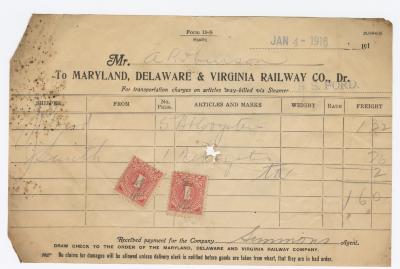 Form 19-S
JAN 4 - 1916 191
Mr. A Robinson
To MARYLAND, DELAWARE & VIRGINIA RAILWAY CO., Dr.
For transportation charges on articles way-billed via Steamer B. S. FORD.
SHIPPER FROM No. Pcms. ARTICLES AND MARKS WEIGHT RATE FREIGHT
5 Bl Oyster 1 32
J Smith 1 Bl Oyster 26
tax 2
1 60
1
1
Received payment for the Company Simmons Agent.
DRAW CHECK TO THE ORDER OF THE MARYLAND, DELAWARE AND VIRGINIA RAILWAY COMPANY.
No claims for damages will be allowed unless delivery clerk is notified before goods are taken from wharf, that they are in bad order.